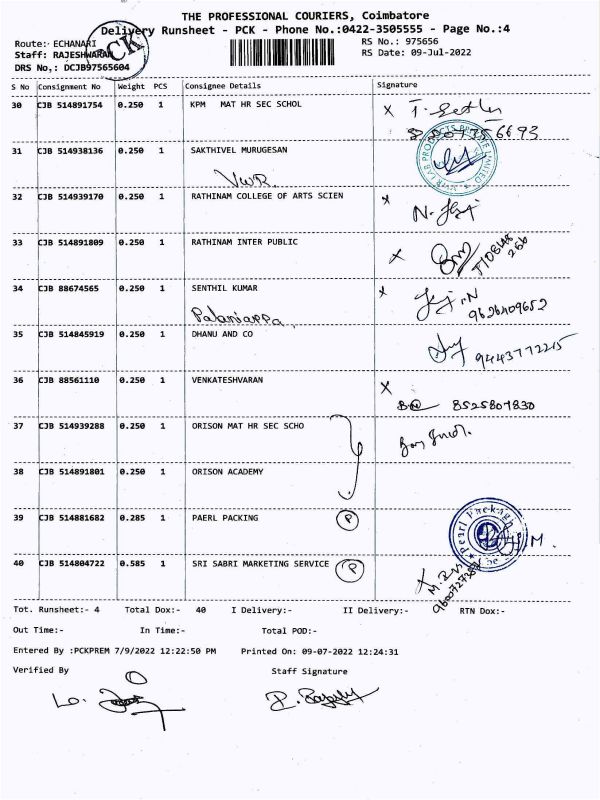 THE PROFESSIONAL COURIERS, Coimbatore
Delivery Runsheet - PCK - Phone No.:0422-3505555 - Page No.:4
Route:- ECHANARI RS No.: 975656
Staff: RAJESHWARAN RS Date: 09-Jul-2022
DRS No,: DCJB97565604
PCK
S No Consignment No Weight PCS Consignee Details Signature
30 CJB 514891754 0.250 1 KPM MAT HR SEC SCHOL
31 CJB 514938136 0.250 1 SAKTHIVEL MURUGESAN
VWR
32 CJB 514939170 0.250 1 RATHINAM COLLEGE OF ARTS SCIEN
33 CJB 514891809 0.250 1 RATHINAM INTER PUBLIC
34 CJB 88674565 0.250 1 SENTHIL KUMAR
Palaniappa
9626409652
35 CJB 514845919 0.250 1 DHANU AND CO
9443772215
36 CJB 88561110 0.250 1 VENKATESHVARAN
8525807830
37 CJB 514939288 0.250 1 ORISON MAT HR SEC SCHO
38 CJB 514891801 0.250 1 ORISON ACADEMY
39 CJB 514881682 0.285 1 PAERL PACKING P
Pearl Packagh
40 CJB 514804722 0.585 1 SRI SABRI MARKETING SERVICE P
Tot. Runsheet:- 4 Total Dox:- 40 I Delivery:- II Delivery:- RTN Dox:-
Out Time:- In Time:- Total POD:-
Entered By :PCKPREM 7/9/2022 12:22:50 PM Printed On: 09-07-2022 12:24:31
Verified By Staff Signature